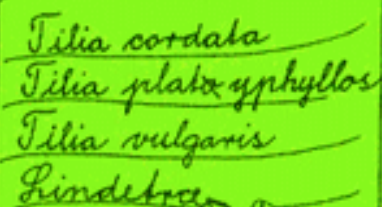 Tilia cordata
Tilia platyphyllos
Tilia vulgaris
Lindetræ